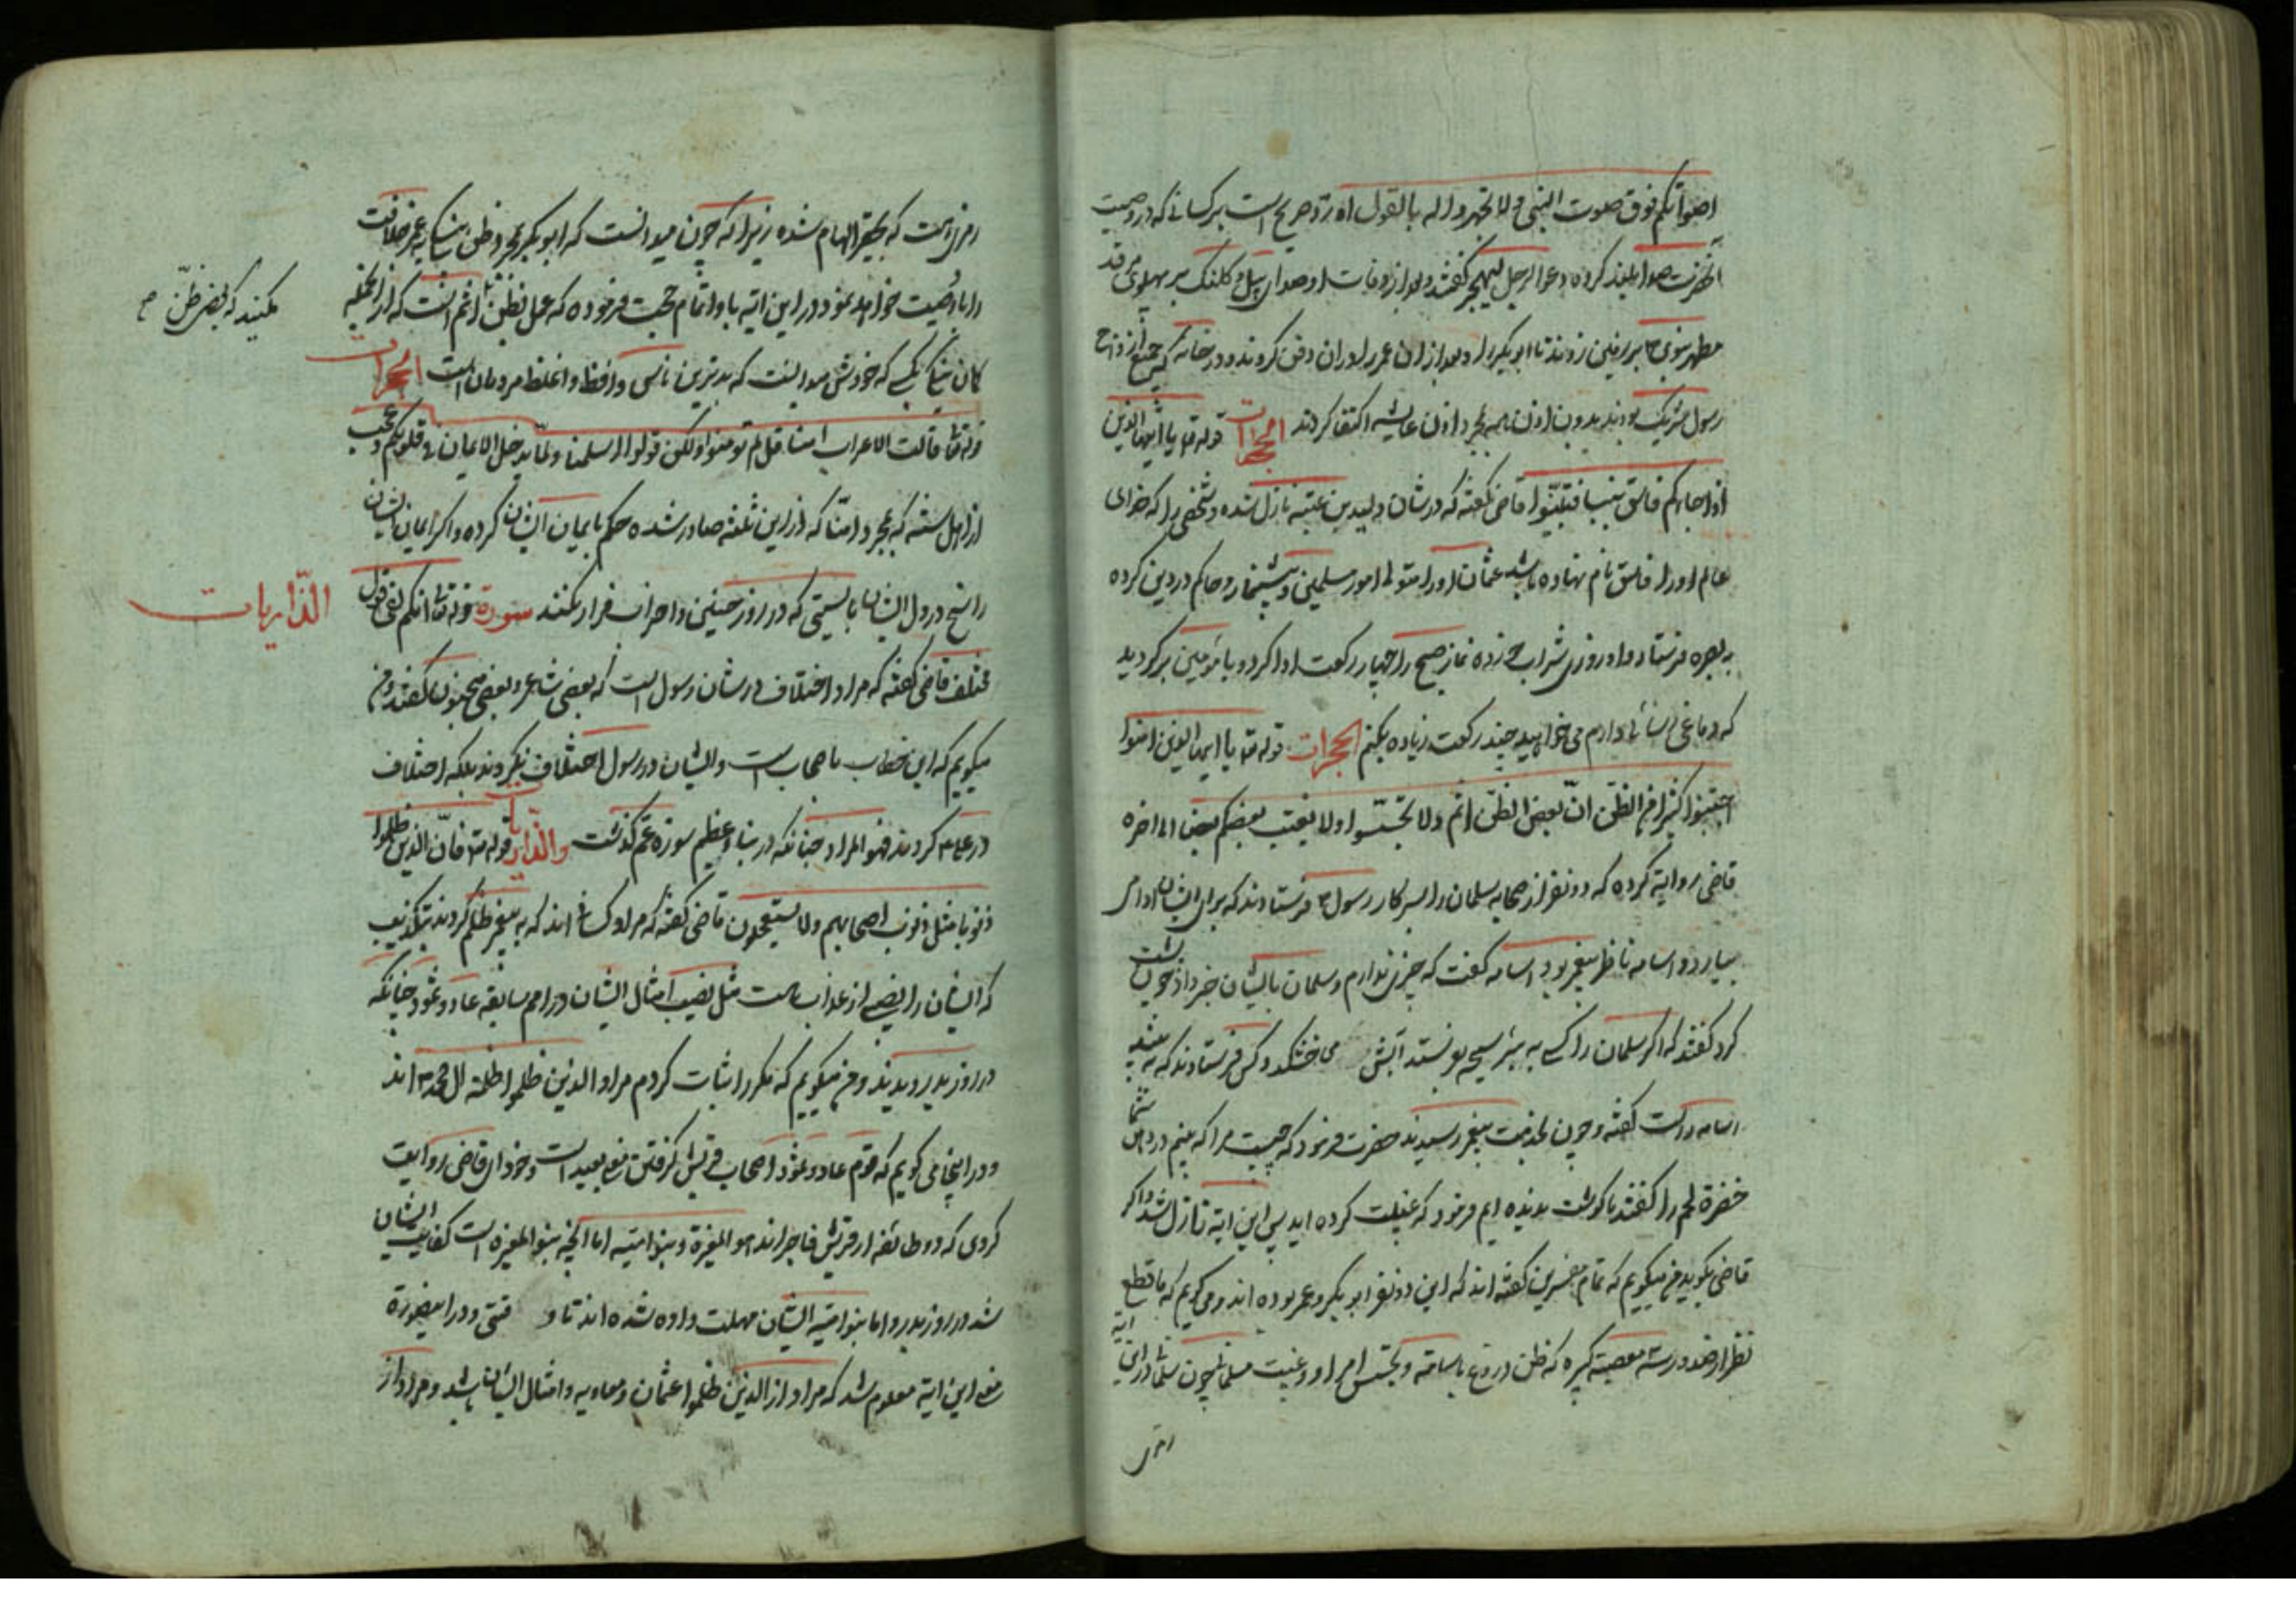 اصواتکم فوق صوت النبی ولا تجهروا له بالقول اه رد صریح است بر کسانی که در وصیت
آنحضرت صدا بلند کرده دعوا الرجل لیهجر گفتند و بعد از وفات او صدای بیل و کلنک بر پهلوی مرقد
مطهر نبوی ؐ بر زمین زدند تا ابوبکر را و بعد از ان عمر را در ان دفن کردند و در خانه که جمیع ازواج
رسول شریک بودند بدون اذن همه بمجرد اذن عایشه اکتفا کردند الحجرات قوله تع یا ایها الذین
اذا جاءکم فاسق بنبا فتبینوا قاضی گفته که در شان ولید بن عتبه نازل شده و شخصی را که خدای
عالم او را فاسق نام نهاده باشد عثمان او را متولی امور مسلمین و پیشنماز و حاکم در دین کرده
به بصره فرستاد و او روزی شراب خورده نماز صبح را چهار رکعت ادا کرد و با مؤمنین بر گردید
که دماغی رسائی دارم می خواهید چند رکعت زیاده بکنم الحجرات قوله تع یا ایها الذین امنوا
اجتنبوا کثیرا من الظن ان بعض الظن اثم ولا تجسسوا ولا یغتب بعضکم بعضا الی اخره
قاضی روایة کرده که دو نفر از صحابه سلمان را بسرکار رسول ؐ فرستادند که برای ایشان ادام
بیارد و اسامه ناظر پیغمبر بود اسامه گفت که چیزی ندارم و سلمان بایشان خبر داد چون بازگشت
کرد گفتند که اگر سلمان را کسی به بئر سمیحه بفرستد آبش می خشکد و کس فرستادند که به بیند
اسامه راست گفته و چون بخدمت پیغمبر رسیدند حضرت فرمود که چیست مرا که بینم در دهن شما
خضرة لحم را گفتند ما گوشت ندیده ایم فرمود که غیبت کرده اید پس این ایة نازل شد و اگر
قاضی نگوید من میگویم که تمام مفسرین گفته اند که این دو نفر ابوبکر و عمر بوده اند و می گویم که با قطع
نظر از صدور سه معصیة کبیره که ظن دروغ باسامه و تجسس امر او و غیبت مسلمانی چون سلمان در این ایة
رمزی
رمزی است که بحقیر الهام شده زیرا که چون میدانست که ابوبکر بمجرد ظن نیکی بعمر خلافت
را باو وصیت خواهد نمود در این ایة باو اتمام حجت فرموده که عمل بظن اثم است که از انجمله
مکنید که بعض ظن ص
کمان نیکی بکسی که خودش میدانست که بدترین ناس و افظ و اغلظ مردمان است الحجرات
قوله تع قالت الاعراب امنا قل لم تومنوا ولکن قولوا اسلمنا ولما یدخل الایمان فی قلوبکم و عجب
از اهل سنته که بمجرد امنا که از این ثلثه صادر شده حکم بایمان ایشان کرده و اگر ایمان ایشان
راسخ در دل ایشان بایستی که در روز حنین و احزاب فرار نکنند سورة الذاریات قوله تع انکم لفی قول
مختلف قاضی گفته که مراد اختلاف در شان رسول است که بعضی شاعر و بعضی مجنون گفتند و من
میگویم که این خطاب باصحاب است و ایشان در رسول اختلاف نکردند بلکه اختلاف
در علی ؑ کردند فهو المراد چنانکه در نبا عظیم سوره عم گذشت والذاریات قوله تع فان الذین ظلموا
ذنوبا مثل ذنوب اصحابهم ولا یستعجلون قاضی گفته که مراد کسانی اند که به پیغمبر ظلم کردند بتکذیب
که ایشان را نصیبی از عذاب است مثل نصیب امثال ایشان در امم سابقه عاد و ثمود چنانکه
در روز بدر دیدند و من میگویم که مکرر اثبات کردم مراد الذین ظلموا ظلمة ال محمد ؐ اند
و در اینجا می گویم که قوم عاد و ثمود اصحاب قریش گرفتن معنی بعید است و خود ای قاضی روایت
کردی که دو طائفه از قریش فاجر اند بنو المغیرة و بنو امیه اما انچه بنو المغیره است کفایت ایشان
شد در روز بدر و اما بنو امیه ایشان مهلت داده شده اند تا وقتی و در اینصورة
معنی این ایة معلوم شد که مراد از الذین ظلموا عثمان و معاویه و امثال ایشان باشد و مراد از